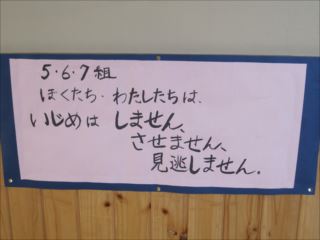 5・6・7組
ぼくたち・わたしたちは、
いじめは しません、
させません、
見逃しません.